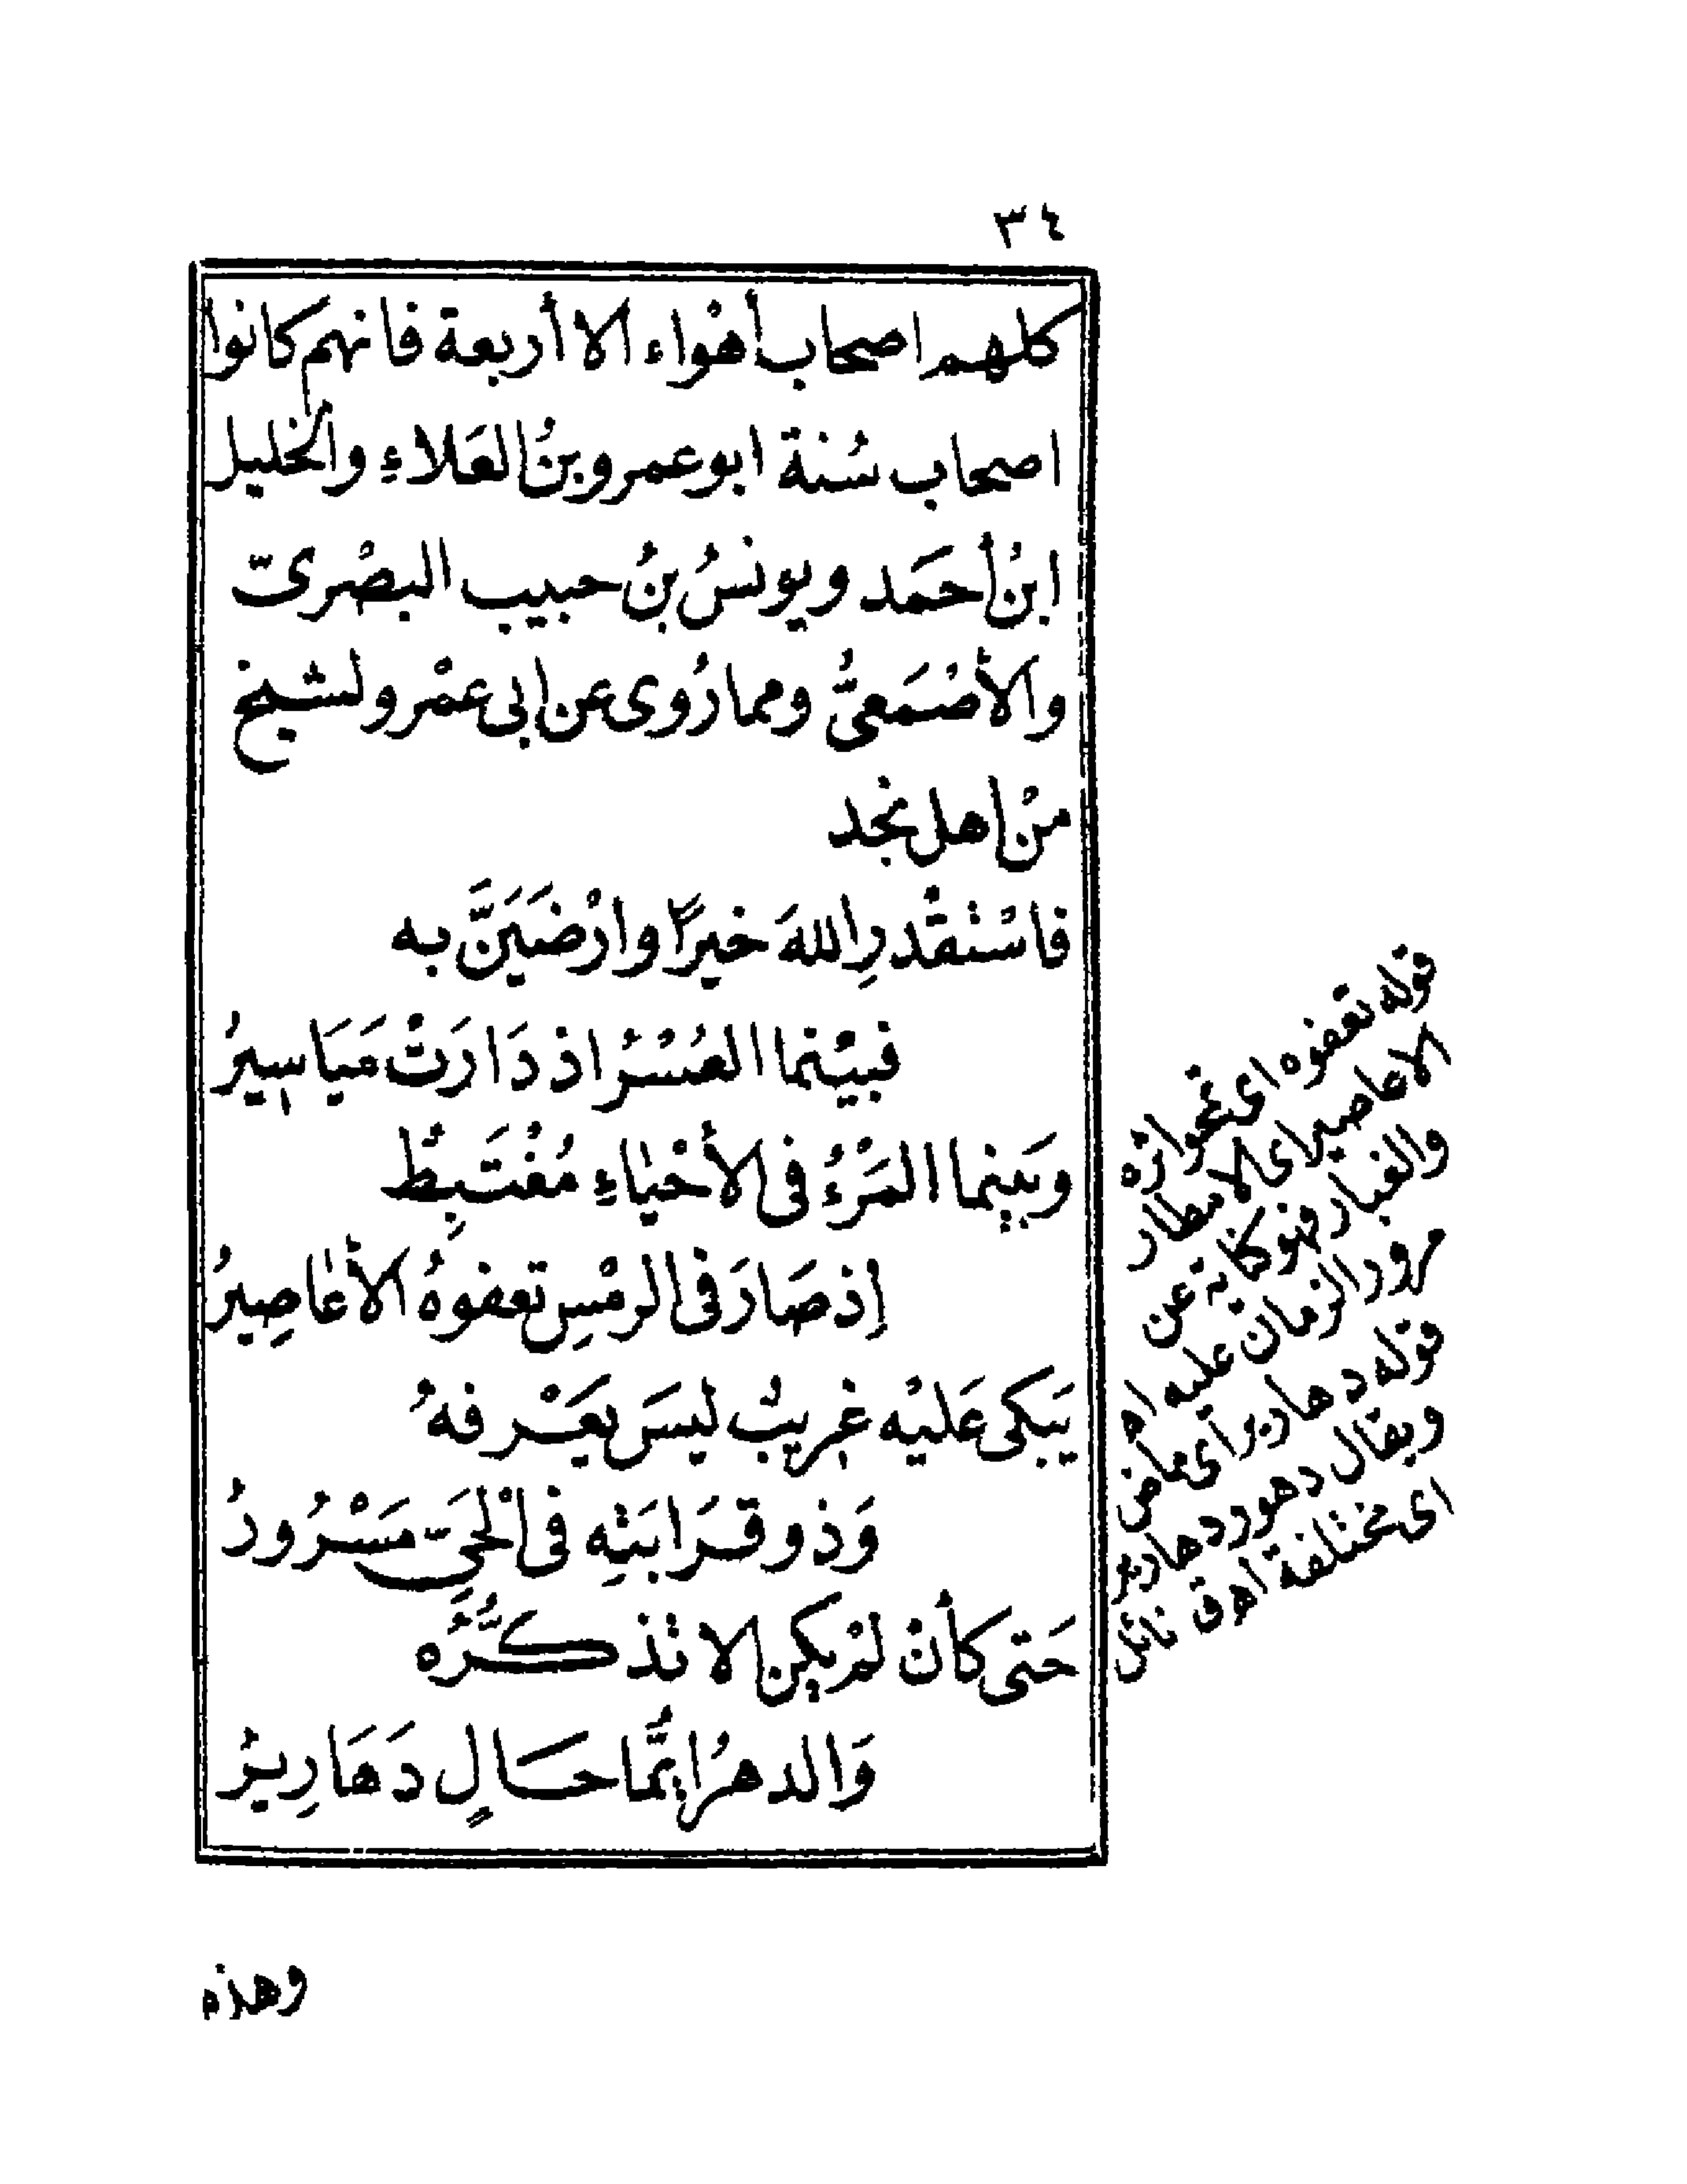 ٣٤
كلهم اصحاب أهْواء الا أربعة فانهم كانوا
اصحاب سُنة ابو عمرو بنُ العَلاءِ والخليل
ابنُ أحمَد ويونسُ بنُ حبيب البصْرىّ
والأصْمَعىُّ ومما رُوى عن ابى عمْرو لشيخ
منْ اهل نجد
فاسْتقْدرِ اللهَ خيرًا وارْضَيَنَّ به
فبيْنما العُسْرُ اذ دَارَتْ مَيَاسِيرُ
وبَينما المَرْءُ فى الأحْياءِ مُغْتَبِطٌ
إذ صَارَ فى الرمْسِ تعفوهُ الأعَاصِيرُ
يَبكى عَليْه غريبٌ ليسَ يعَرْفهُ
وَذو قَرَابَتِه فى الْحَىِّ مَسْرُورُ
حَتى كأنْ لمْ يكن الا تذكُّرُه
وَالدهرُ ايَّتمَا حَالٍ دَهَارِيرُ
قوله تعفوه اى تمحو اثره
الاعاصير اى الامطار
والغبار فهو كناية عن
مرور الزمان عليه اه
قوله دهارير اى ماض
ويقال دهور دهارير
اى مختلفة اه
وهذه